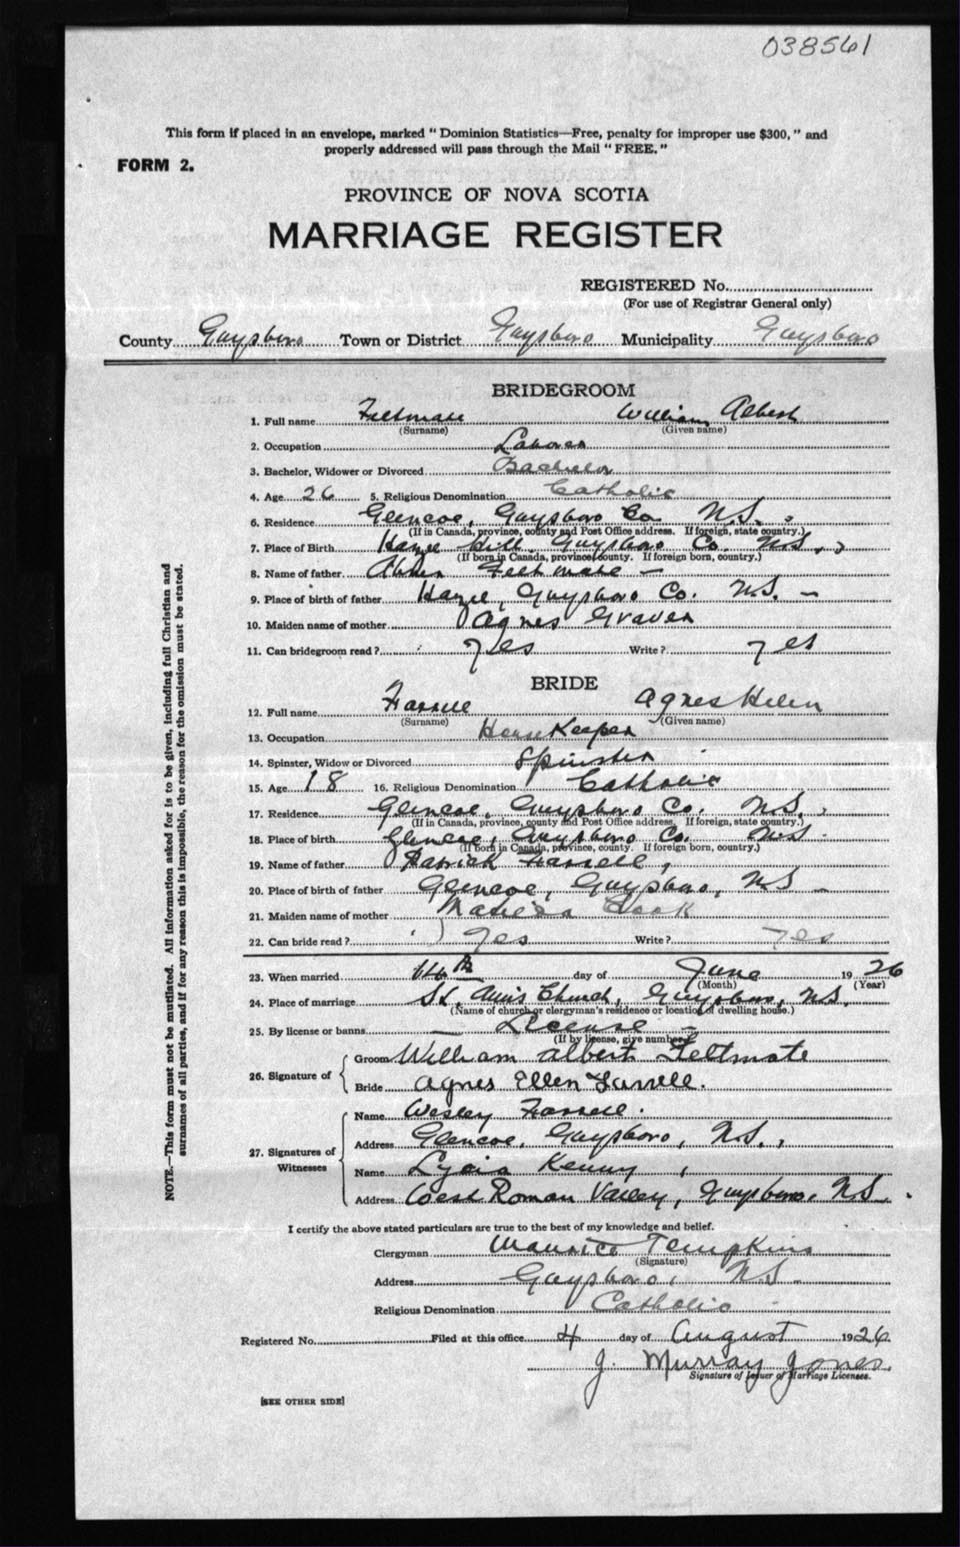 038561
This form if placed in an envelope, marked "Dominion Statistics—Free, penalty for improper use $300," and
properly addressed will pass through the Mail "FREE."
FORM 2.
PROVINCE OF NOVA SCOTIA
MARRIAGE REGISTER
REGISTERED No.
(For use of Registrar General only)
County Guysboro Town or District Guysboro Municipality Guysboro
BRIDEGROOM
1. Full name Feltmate William Albert
(Surname) (Given name)
2. Occupation Laborer
3. Bachelor, Widower or Divorced Bachelor
4. Age 26 5. Religious Denomination Catholic
6. Residence Glencoe, Guysboro Co N.S.
(If in Canada, province, county and Post Office address. If foreign, state country.)
7. Place of Birth Hazel Hill, Guysboro Co. N.S.,
(If born in Canada, province, county. If foreign born, country.)
8. Name of father Feltmate —
9. Place of birth of father Guysboro Co. N.S. —
10. Maiden name of mother Agnes Graven
11. Can bridegroom read? Yes Write? Yes
BRIDE
12. Full name Farrell Agnes Helen
(Surname) (Given name)
13. Occupation House Keeper
14. Spinster, Widow or Divorced Spinster
15. Age 18 16. Religious Denomination Catholic
17. Residence Glencoe, Guysboro Co. N.S.,
(If in Canada, province, county and Post Office address. If foreign, state country.)
18. Place of birth Glencoe, Guysboro Co. N.S.
(If born in Canada, province, county. If foreign born, country.)
19. Name of father Patrick Farrell,
20. Place of birth of father Glencoe, Guysboro, N.S —
21. Maiden name of mother Matilda
22. Can bride read? Yes Write? Yes
23. When married 14th day of June 1926
(Month) (Year)
24. Place of marriage St. Ann's Church, Guysboro, N.S.
(Name of church or clergyman's residence or location of dwelling house.)
25. By license or banns — License —
(If by license, give number)
26. Signature of Groom William Albert Feltmate
Bride Agnes Ellen Farrell.
27. Signatures of Witnesses
Name Wesley Farrell.
Address Glencoe, Guysboro, N.S.,
Name Lydia Kenny,
Address West Roman Valley, Guysboro, N.S.
I certify the above stated particulars are true to the best of my knowledge and belief.
Clergyman Maurice Tompkins
(Signature)
Address Guysboro, N.S.
Religious Denomination Catholic
Registered No. Filed at this office 4 day of August 1926
J. Murray Jones.
Signature of Issuer of Marriage Licenses.
[SEE OTHER SIDE]
NOTE.—This form must not be mutilated. All information asked for is to be given, including full Christian and
surnames of all parties, and if for any reason this is impossible, the reason for the omission must be stated.